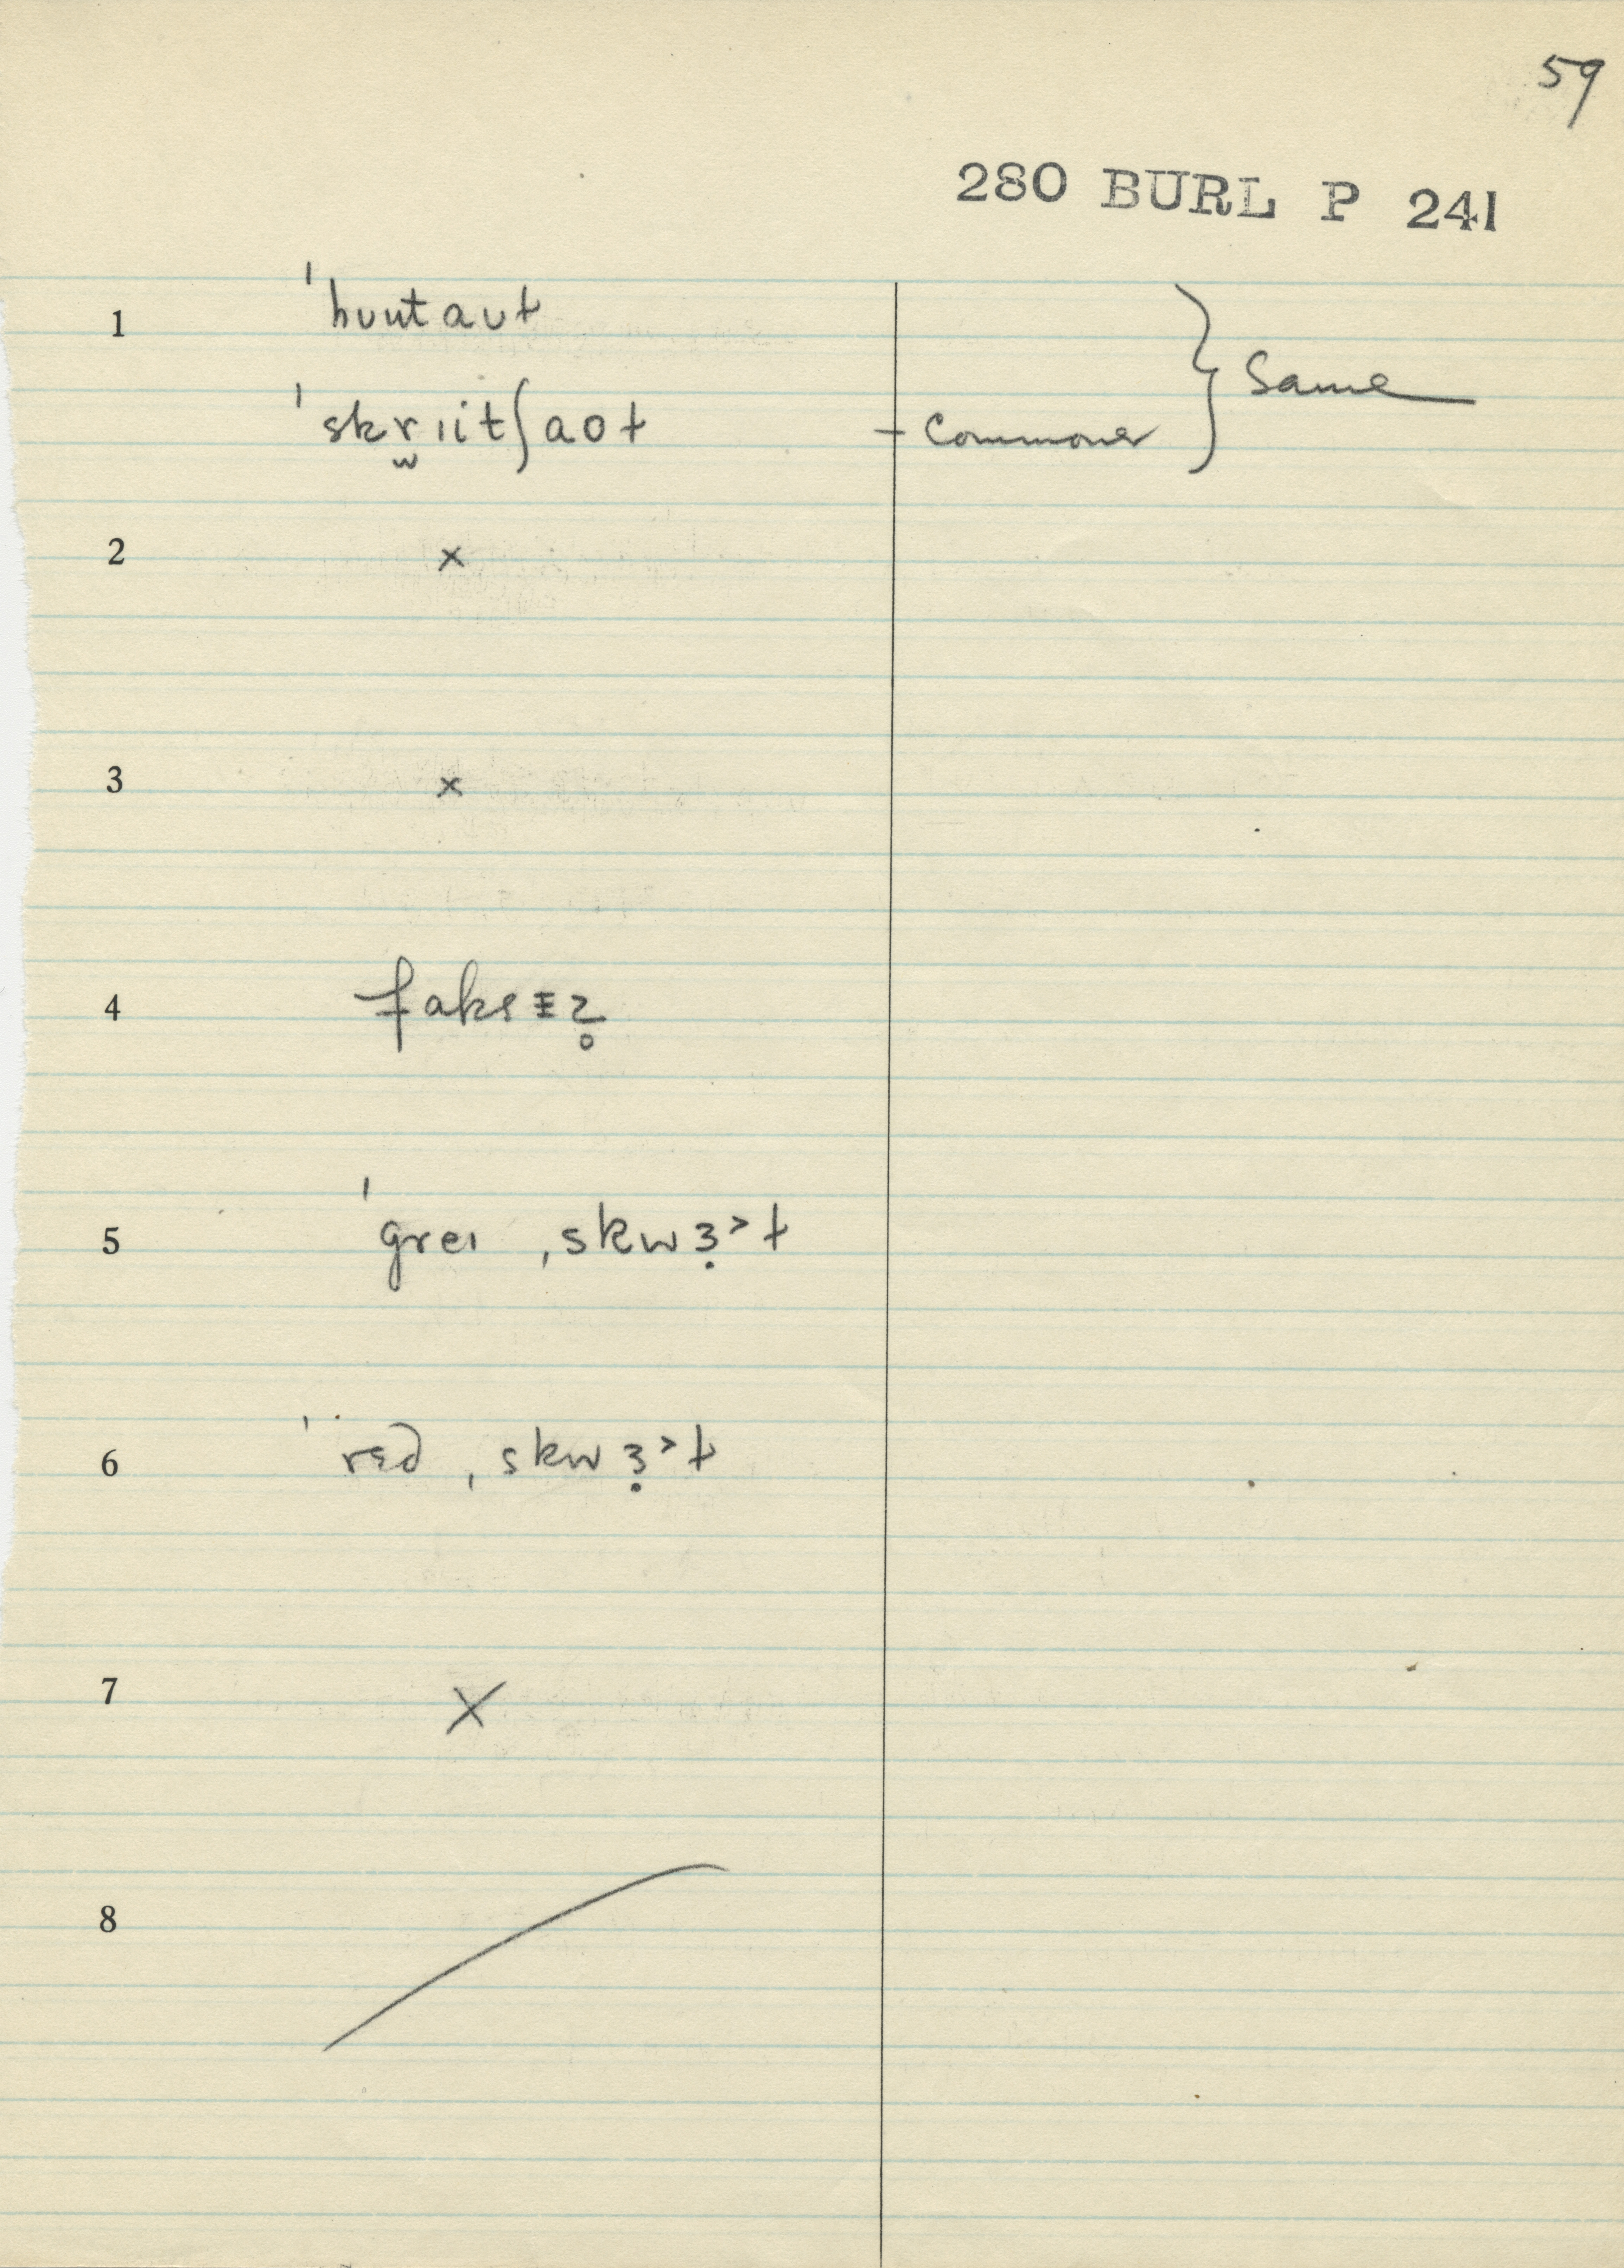 59
280 BURL P 241
1 ˈhuutaʊt
ˈskr̬ɪitʃaot - commoner } Same
2 ×
3 ×
4
5 ˈgreɪ ˌskwɜ˃t
6 ˈrɛd ˌskwɜ˃t
7 ×
8